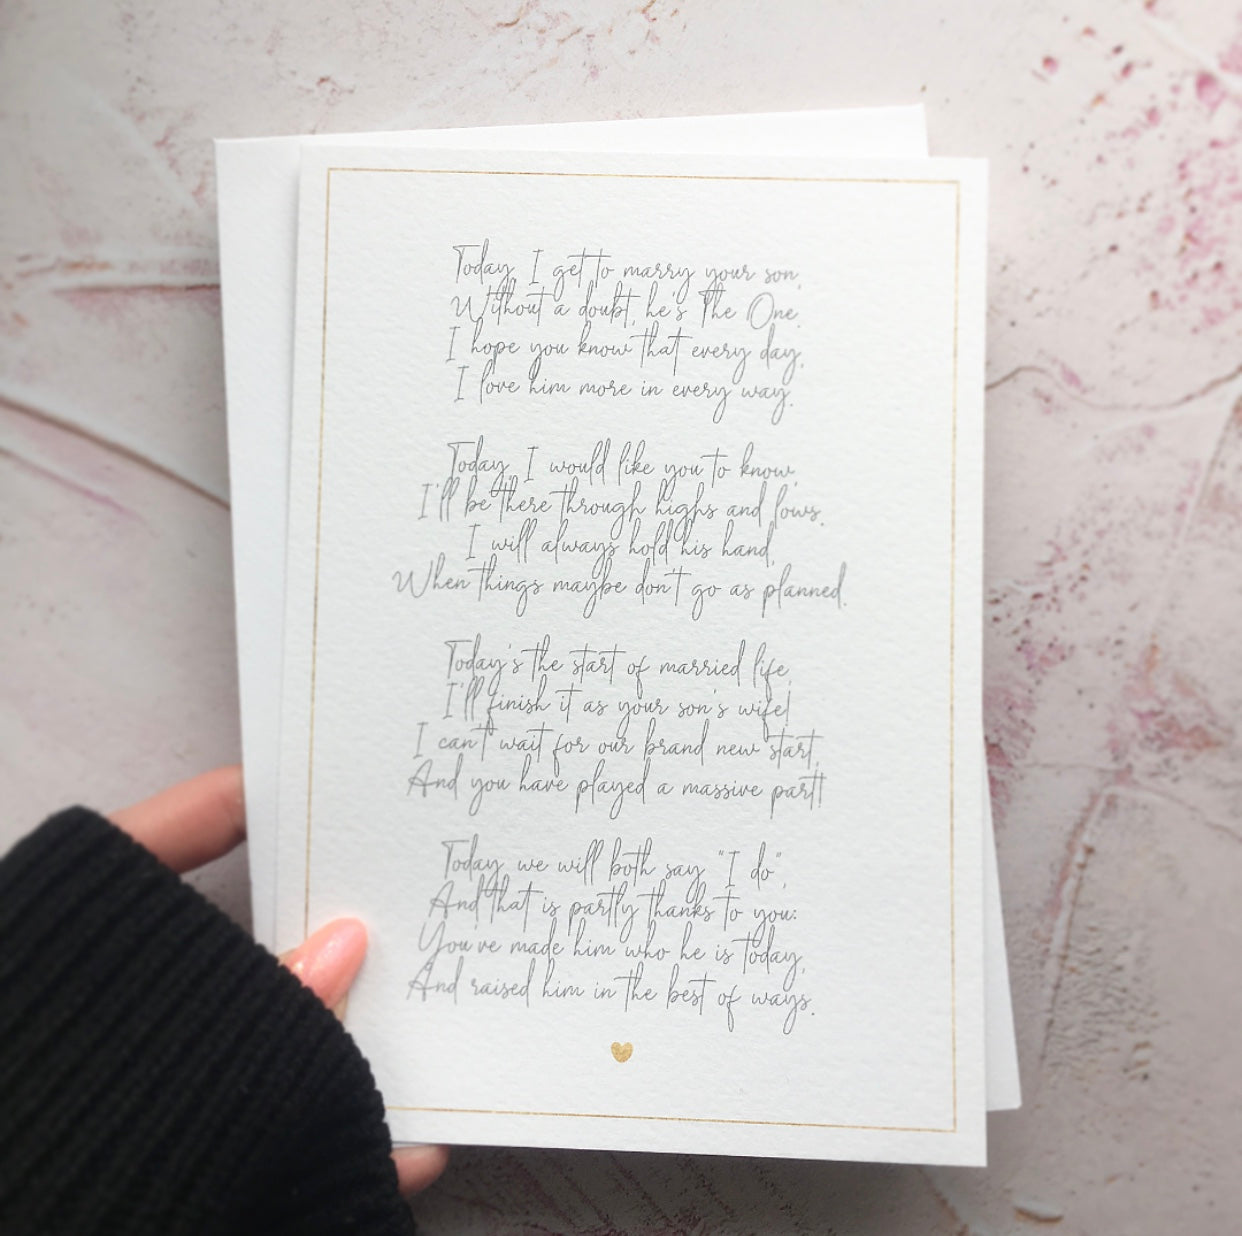 Today, I get to marry your son,
Without a doubt, he's The One.
I hope you know that every day,
I love him more in every way.
Today, I would like you to know,
I'll be there through highs and lows.
I will always hold his hand,
When things maybe don't go as planned.
Today's the start of married life,
I'll finish it as your son's wife!
I can't wait for our brand new start,
And you have played a massive part!
Today we will both say "I do",
And that is partly thanks to you:
You've made him who he is today,
And raised him in the best of ways.